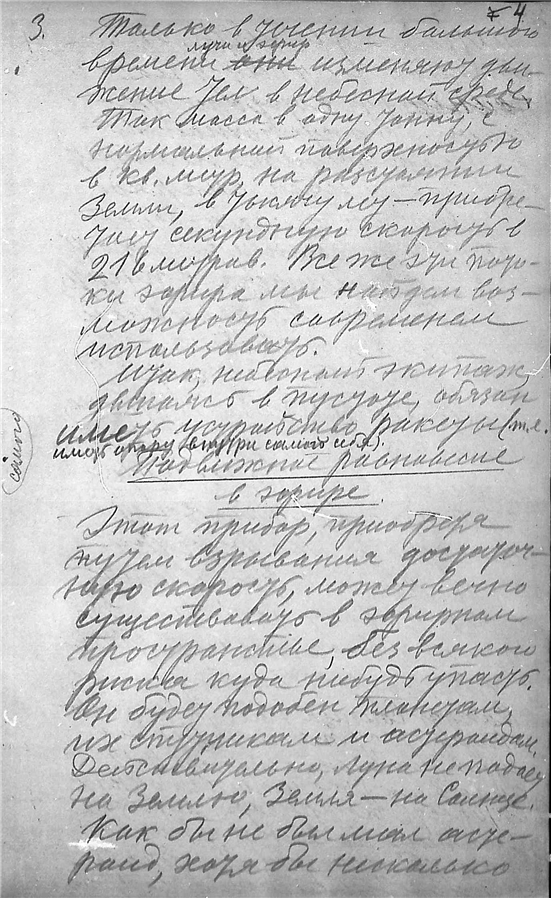 3.
4
Только в течении большого
лучи и эфир
времени они изменяют дви-
жение тел в небесной среде.
Так масса в одну тонну, с
нормальной поверхностью
в кв. метр, на расстоянии
Земли, в тысячу лет приобре-
тает секундную скорость в
21 в метров. Все же эти пото-
ки эфира мы найдем воз-
можность современем
использовать.
Итак, небесный экипаж,
двигаясь в пустоте, обязан
иметь устройство ракеты (т.е.
иметь опору внутри самого себя).
самого
Подвижное равновесие
в эфире.
Этот прибор, приобретя
путем взрывания достаточ-
ную скорость, может вечно
существовать в эфирном
пространстве, без всякого
риска куда нибудь упасть.
Он будет подобен планетам,
их спутникам и астероидам.
Действительно, луна не падает
на Землю, Земля — на Солнце.
Как бы не был мал асте-
роид, хотя бы несколько